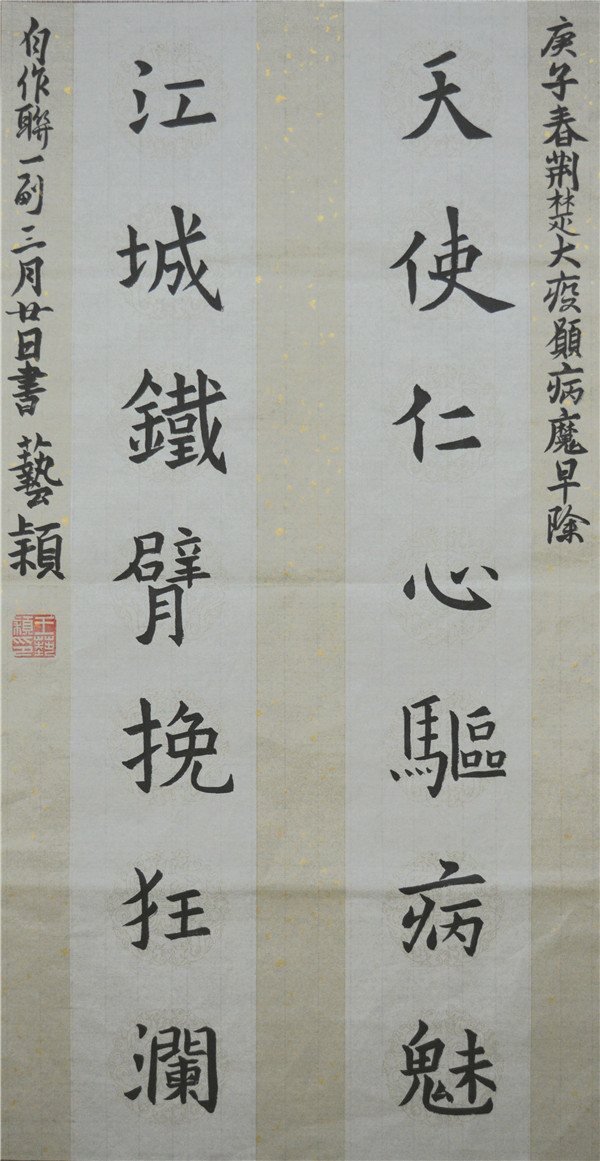 庚子春荆楚大疫願病魔早除
天使仁心驅病魅
江城鐵臂挽狂瀾
自作聯一副三月廿日書藝穎
王藝穎印